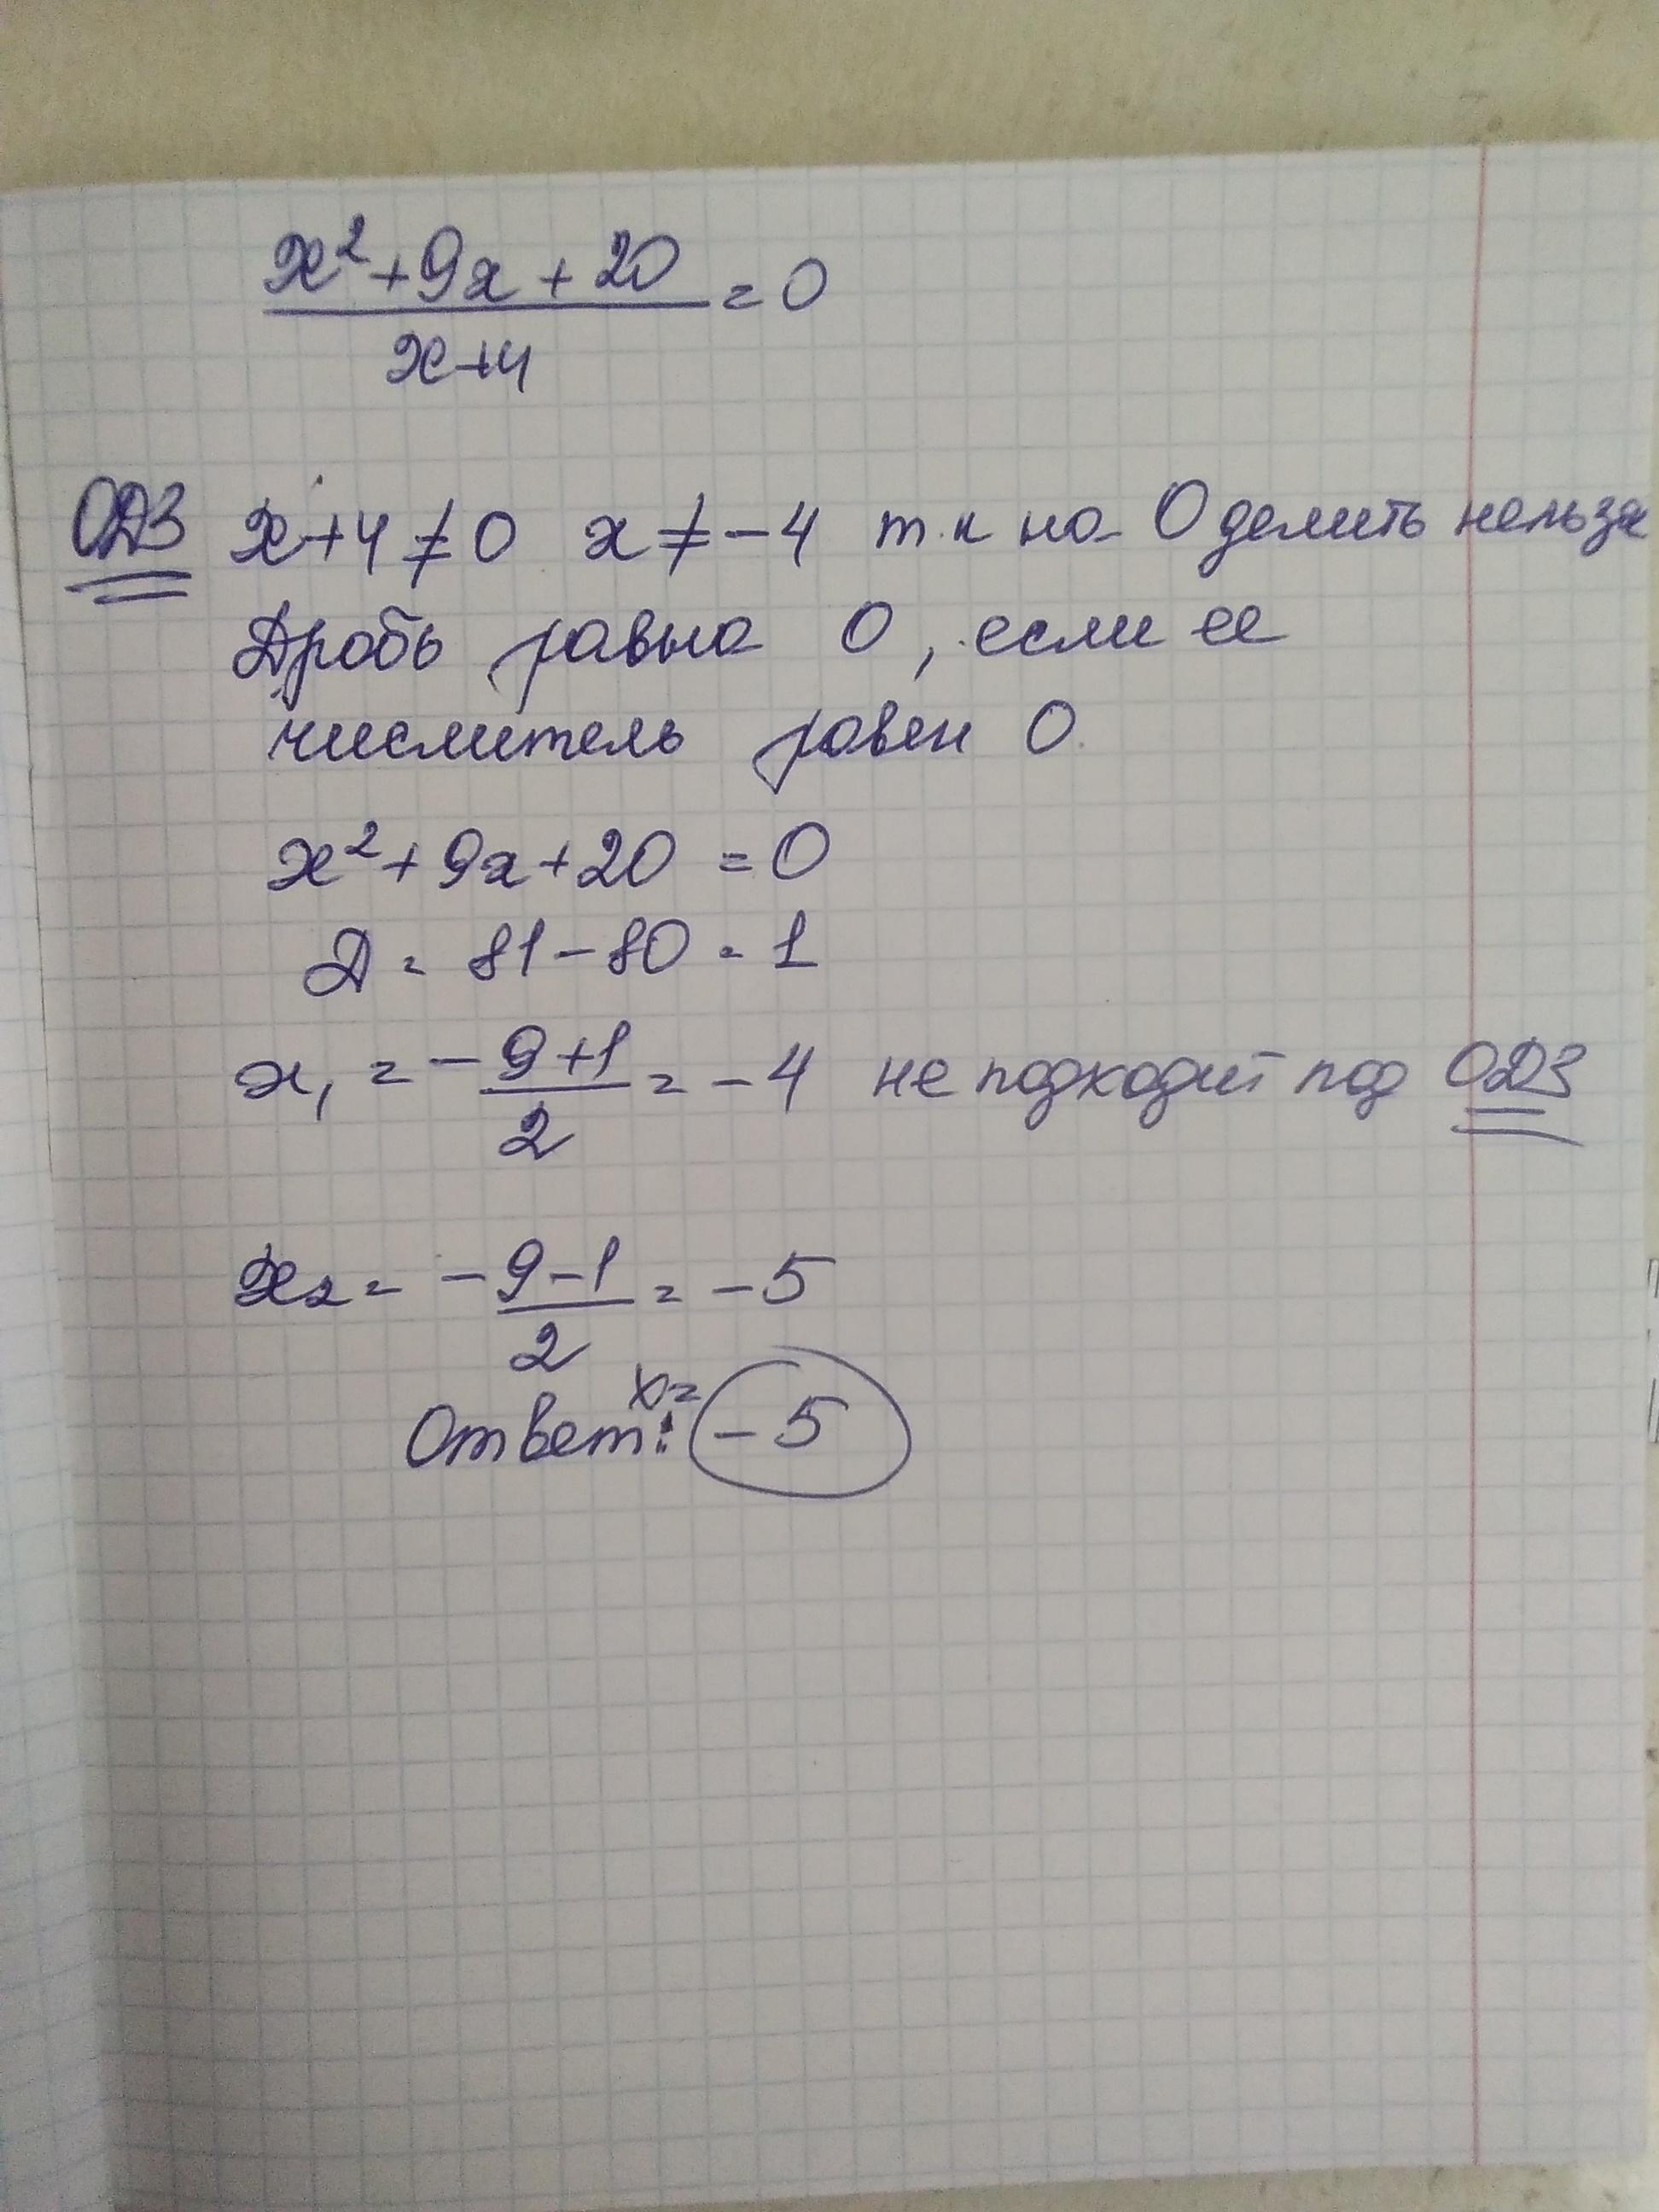 x²+9x+20
x+4 =0
ОДЗ x+4≠0 x≠-4 т.к на 0 делить нельзя
Дробь равна 0, если ее
числитель равен 0.
x²+9x+20=0
Д=81-80=1
x₁=-9+1/2=-4 не подходит под ОДЗ
x₂=-9-1/2=-5
Ответ: x=-5